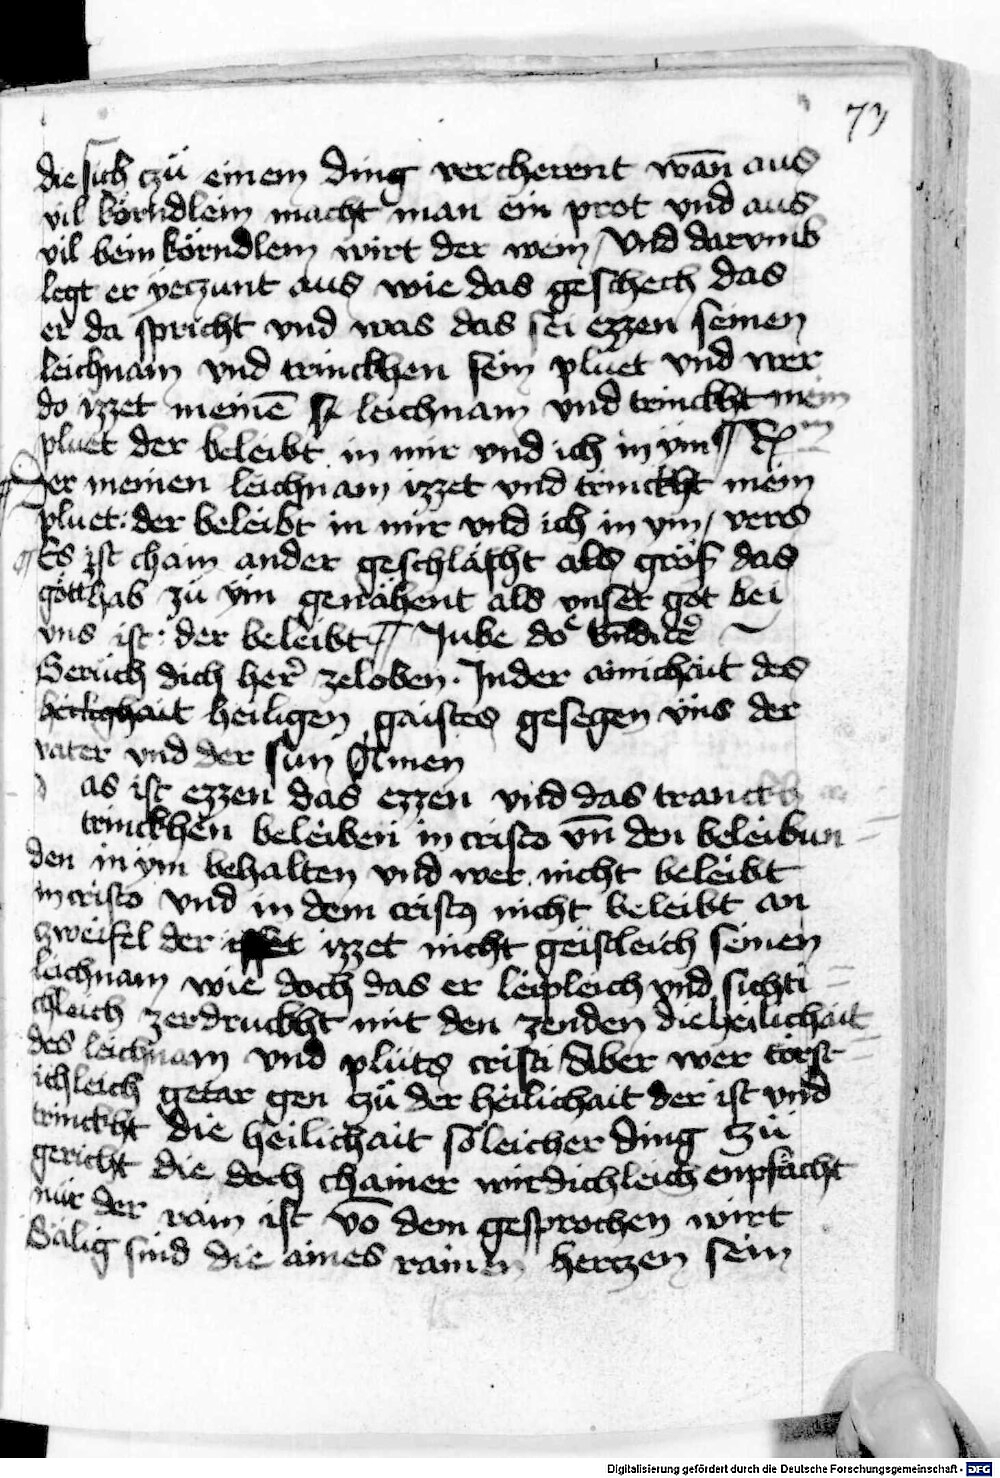 73
die sich czü einem ding vercherent wān aus
vil körndlein macht man ein prot vnd aus
vil bein körndlem wirt der wein / Vnd darvmb
legt er yeczunt aus wie das geschech das
er da spricht vnd was das sei ezzen seinen
leichnam vnd trinckhen sein pluet vnd wer
do izzet meinē leichnam vnd trinckht mein
pluet der beleibt in mir vnd ich in ym
Der meinen leichnam izzet vnd trinckht mein
pluet: der beleibt in mir vnd ich in ym / vers
Es ist chain ander geschläfht als gröſ das
gött hab zü ÿm genähent als vnser got bei
vns ist: der beleibt Jube do
Geruch dich her̄ zeloben. In der ainichait des
heilighait heiligen gaistes gesegen vns der
vater vnd der sun Amen
as ist ezzen das ezzen vnd das tranckh
trinckhen beleiben in cristo vn̄ den beleibun
den in ym behalten vnd wer nicht beleibt
in cristo vnd in dem cristꝯ nicht beleibt an
czweifel der izzet nicht geistleich seinen
leichnam wie doch das er leipleich vnd sichti
chleich zerdruckht mit den zenden die heilichait
des leichnam vnd plüts cristi / Aber wer törst
ichleich getar gen czü der heilichait der ist vnd
trinckht die heilichait söleicher ding zü
gericht die doch chainer wirdichleich enpfächt
nür der rain ist vō dem gesprochen wirt
Sälig sind die aines rainen herczen sein
Digitalisierung gefördert durch die Deutsche Forschungsgemeinschaft - DFG